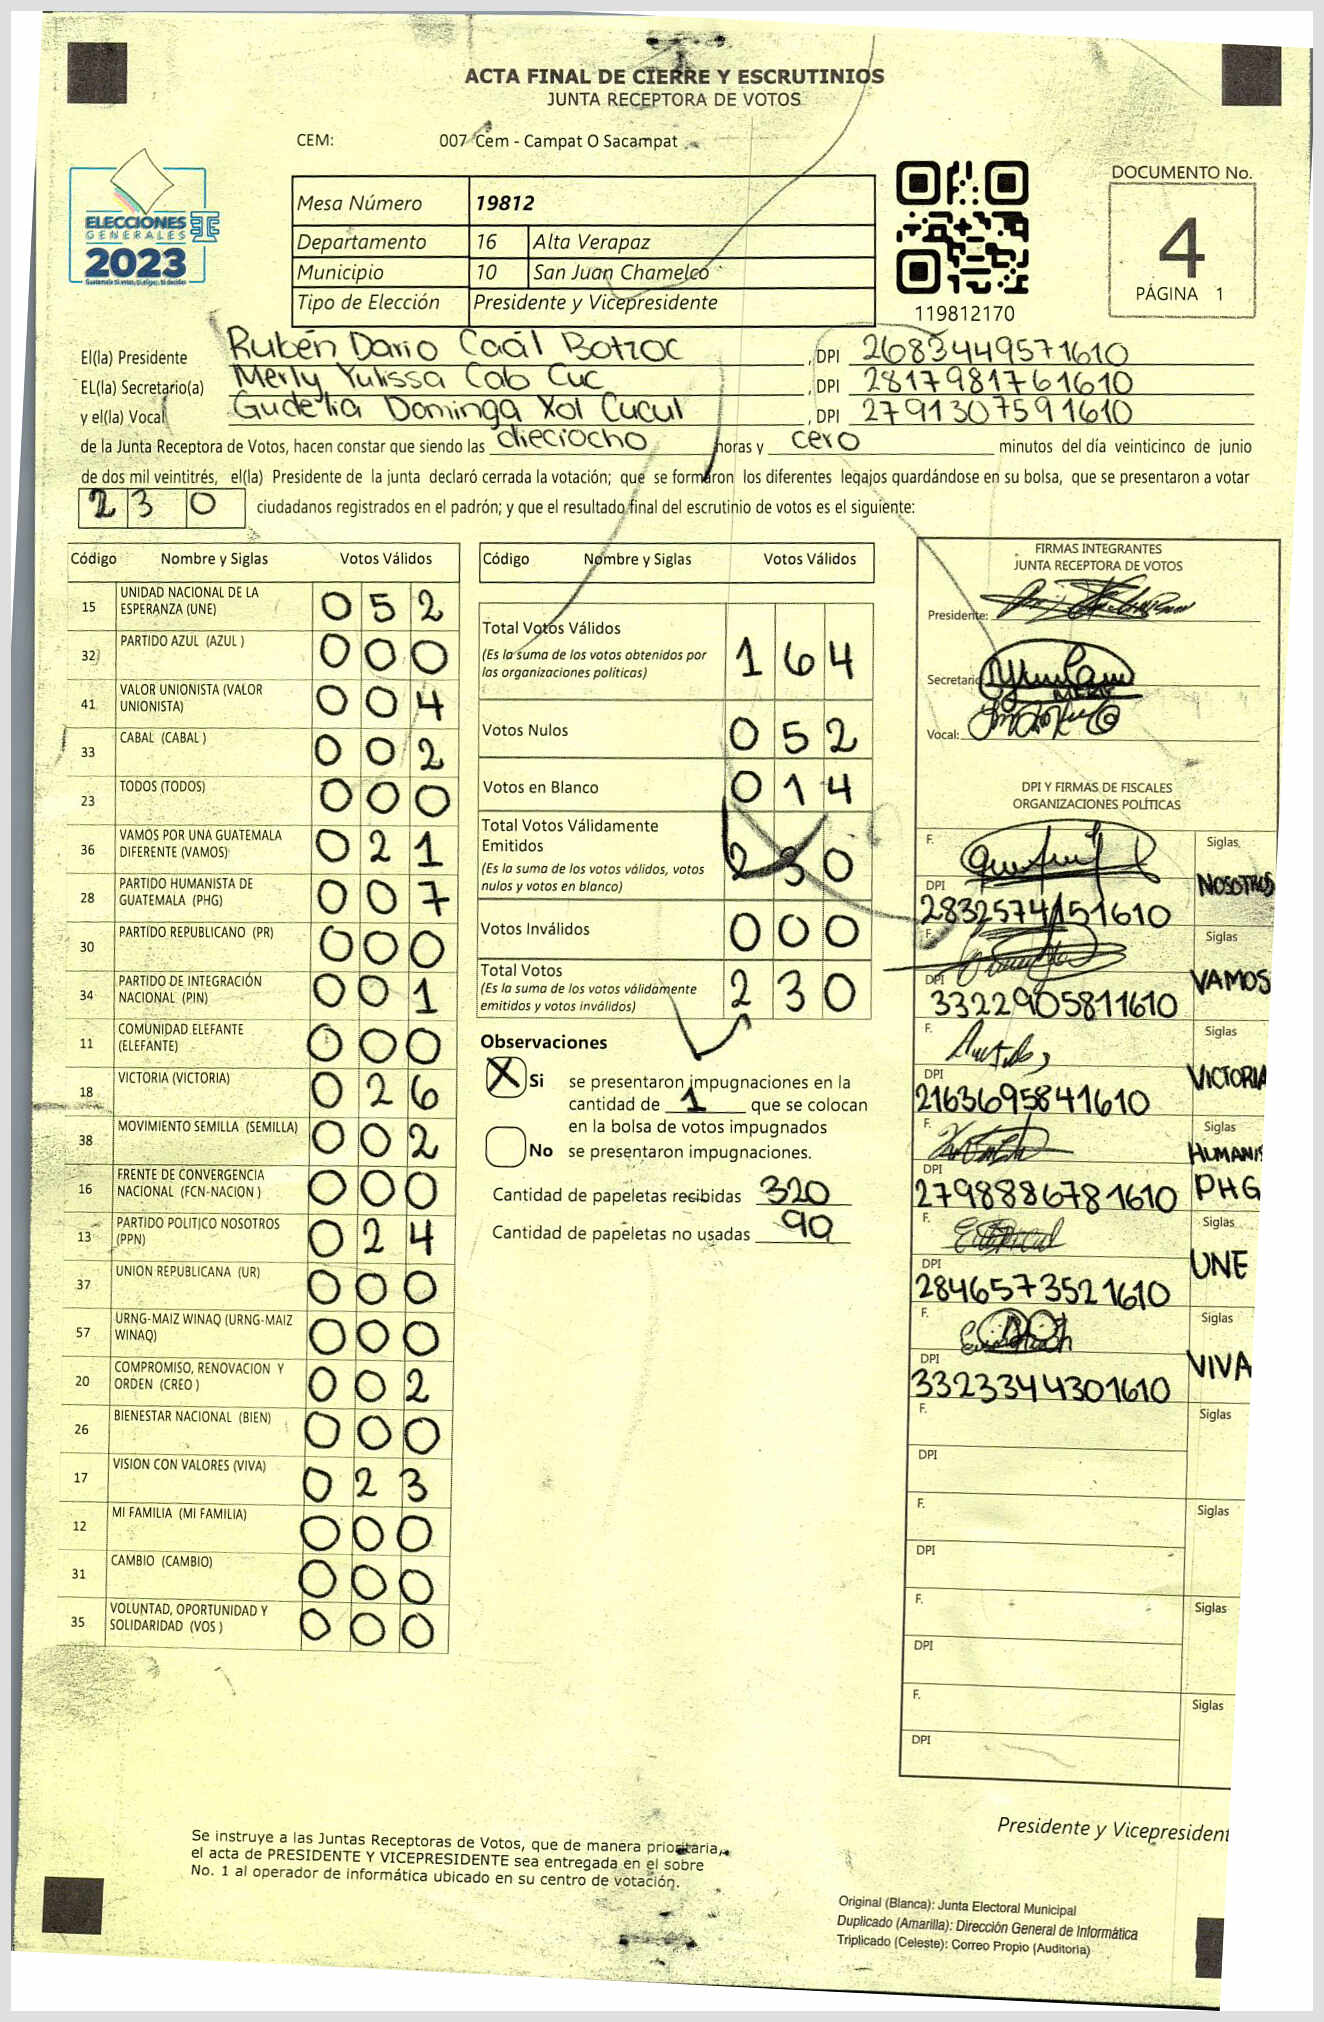 ACTA FINAL DE CIERRE Y ESCRUTINIOS
JUNTA RECEPTORA DE VOTOS
CEM: 007 Cem - Campat O Sacampat
ELECCIONES
GENERALES
2023
Mesa Número 19812
Departamento 16 Alta Verapaz
Municipio 10 San Juan Chamelco
Tipo de Elección Presidente y Vicepresidente
119812170
DOCUMENTO No.
4
PÁGINA 1
El(la) Presidente Rubén Dario Caál Botzoc , DPI 2683449571610
EL(la) Secretario(a) Merly Yulissa Cab Cuc , DPI 2817981761610
y el(la) Vocal Gudelia Dominga Xol Cucul , DPI 2791307591610
de la Junta Receptora de Votos, hacen constar que siendo las dieciocho horas y cero minutos del día veinticinco de junio
de dos mil veintitrés, el(la) Presidente de la junta declaró cerrada la votación; que se formaron los diferentes legajos guardándose en su bolsa, que se presentaron a votar
230 ciudadanos registrados en el padrón; y que el resultado final del escrutinio de votos es el siguiente:
Código Nombre y Siglas Votos Válidos
15 UNIDAD NACIONAL DE LA ESPERANZA (UNE) 052
32 PARTIDO AZUL (AZUL ) 000
41 VALOR UNIONISTA (VALOR UNIONISTA) 004
33 CABAL (CABAL ) 002
23 TODOS (TODOS) 000
36 VAMOS POR UNA GUATEMALA DIFERENTE (VAMOS) 021
28 PARTIDO HUMANISTA DE GUATEMALA (PHG) 007
30 PARTIDO REPUBLICANO (PR) 000
34 PARTIDO DE INTEGRACIÓN NACIONAL (PIN) 001
11 COMUNIDAD ELEFANTE (ELEFANTE) 000
18 VICTORIA (VICTORIA) 026
38 MOVIMIENTO SEMILLA (SEMILLA) 002
16 FRENTE DE CONVERGENCIA NACIONAL (FCN-NACION ) 000
13 PARTIDO POLITICO NOSOTROS (PPN) 024
37 UNION REPUBLICANA (UR) 000
57 URNG-MAIZ WINAQ (URNG-MAIZ WINAQ) 000
20 COMPROMISO, RENOVACION Y ORDEN (CREO ) 002
26 BIENESTAR NACIONAL (BIEN) 000
17 VISION CON VALORES (VIVA) 023
12 MI FAMILIA (MI FAMILIA) 000
31 CAMBIO (CAMBIO) 000
35 VOLUNTAD, OPORTUNIDAD Y SOLIDARIDAD (VOS ) 000
Código Nombre y Siglas Votos Válidos
Total Votos Válidos 164
(Es la suma de los votos obtenidos por
las organizaciones políticas)
Votos Nulos 052
Votos en Blanco 014
Total Votos Válidamente
Emitidos 230
(Es la suma de los votos válidos, votos
nulos y votos en blanco)
Votos Inválidos 000
Total Votos 230
(Es la suma de los votos válidamente
emitidos y votos inválidos)
Observaciones
X Si se presentaron impugnaciones en la
cantidad de 1 que se colocan
en la bolsa de votos impugnados
No se presentaron impugnaciones.
Cantidad de papeletas recibidas 320
Cantidad de papeletas no usadas 90
FIRMAS INTEGRANTES
JUNTA RECEPTORA DE VOTOS
Presidente:
Secretario
Vocal:
DPI Y FIRMAS DE FISCALES
ORGANIZACIONES POLÍTICAS
F. Siglas
NOSOTROS
DPI 2832574151610
F. Siglas
VAMOS
DPI 3322905811610
F. Siglas
VICTORIA
DPI 2163695841610
F. Siglas
HUMANIS
PHG
DPI 2798886781610
F. Siglas
UNE
DPI 2846573521610
F. Siglas
VIVA
DPI 3323344301610
F. Siglas
DPI
F. Siglas
DPI
F. Siglas
DPI
F. Siglas
DPI
Presidente y Vicepresident
Se instruye a las Juntas Receptoras de Votos, que de manera prioritaria,
el acta de PRESIDENTE Y VICEPRESIDENTE sea entregada en el sobre
No. 1 al operador de informática ubicado en su centro de votación.
Original (Blanca): Junta Electoral Municipal
Duplicado (Amarilla): Dirección General de Informática
Triplicado (Celeste): Correo Propio (Auditoria)